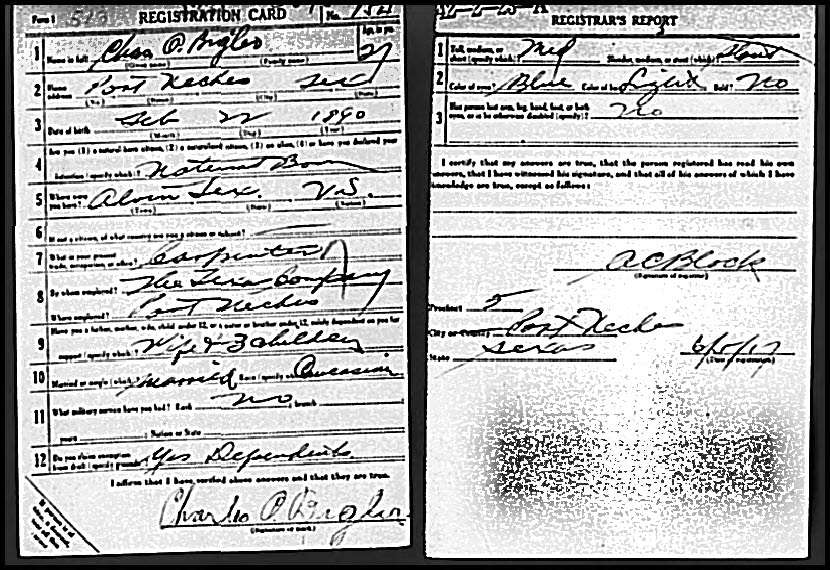 Form 1 REGISTRATION CARD No.
Age, in yrs.
1 Name in full Chas P. Bigler 27
(Given name) (Family name)
2 Home address Port Neches Tex
(No.) (Street) (City) (State)
3 Date of birth Feb 22 1890
(Month) (Day) (Year)
4 Are you (1) a natural born citizen, (2) a naturalized citizen, (3) an alien, (4) or have you declared your
intention (specify which)? Natural Born
5 Where were you born? Alvin Tex. U.S.
(Town) (State) (Nation)
6 If not a citizen, of what country are you a citizen or subject?
7 What is your present trade, occupation, or office? Carpenter
8 By whom employed? The Texas Company
Where employed? Port Neches
9 Have you a father, mother, wife, child under 12, or a sister or brother under 12, solely dependent on you for
support (specify which)? Wife & 3 children
10 Married or single (which)? Married Race (specify which)? Caucasian
11 What military service have you had? Rank no branch
years Nation or State
12 Do you claim exemption from draft (specify grounds)? Yes Dependents
I affirm that I have verified above answers and that they are true.
Charles P Bigler
(Signature or mark)
REGISTRAR'S REPORT
1 Tall, medium, or short (specify which)? Med Slender, medium, or stout (which)? Stout
2 Color of eyes? Blue Color of hair? Light Bald? No
3 Has person lost arm, leg, hand, foot, or both eyes, or is he otherwise disabled (specify)? No
I certify that my answers are true, that the person registered has read his own
answers, that I have witnessed his signature, and that all of his answers of which I have
knowledge are true, except as follows:
A C Block
(Signature of registrar)
Precinct 5
City or County Port Neches
State Texas 6/5/17
(Date of registration)